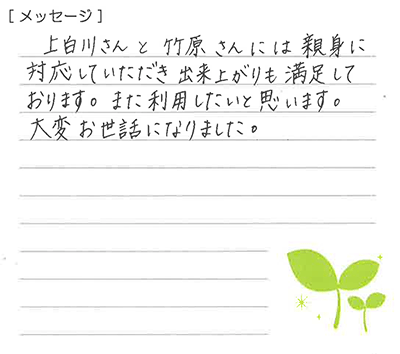 [メッセージ]
上白川さんと竹原さんには親身に
対応していただき出来上がりも満足して
おります。また利用したいと思います。
大変お世話になりました。